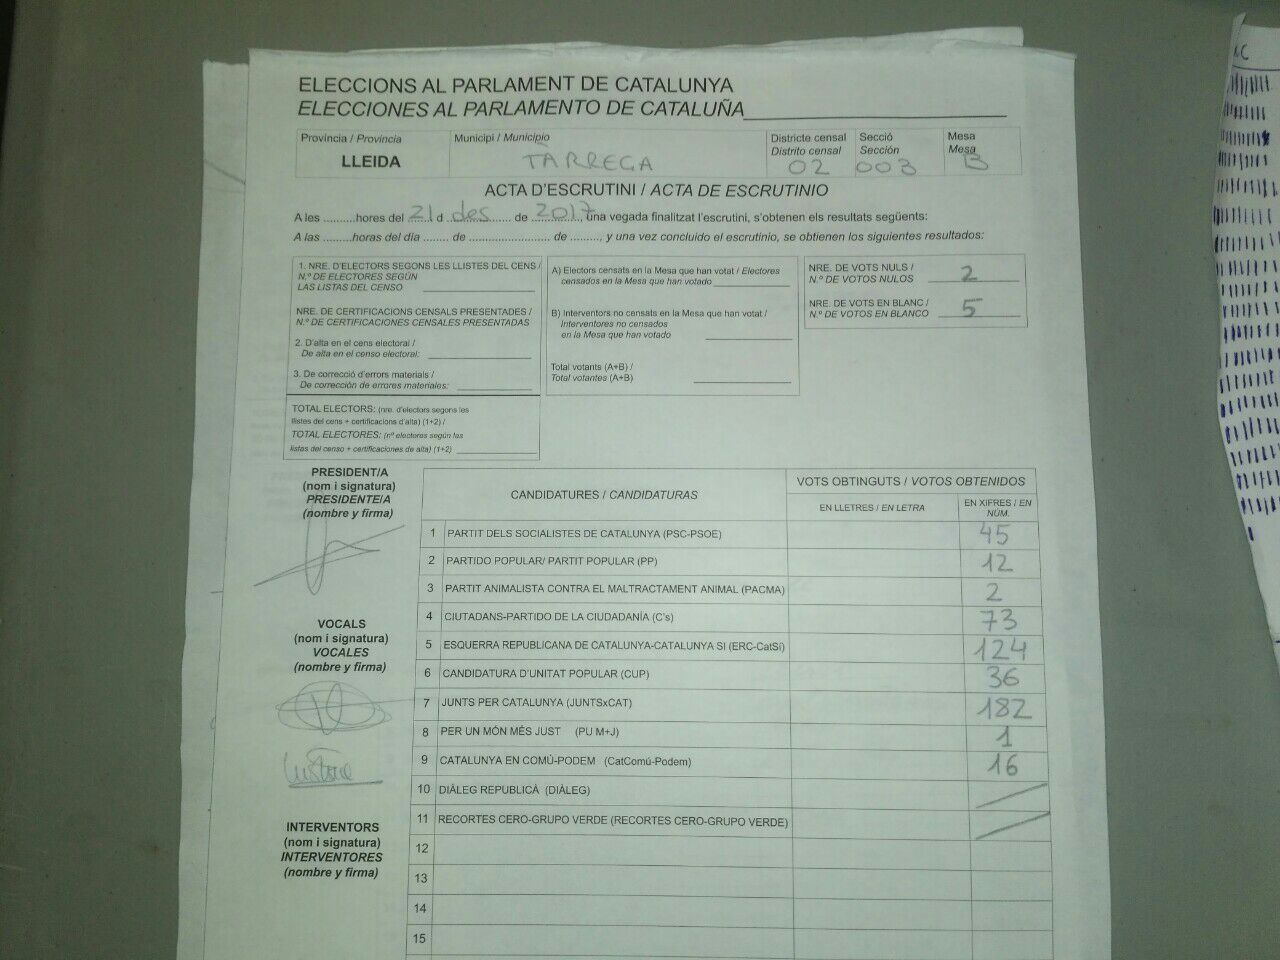 ELECCIONS AL PARLAMENT DE CATALUNYA
ELECCIONES AL PARLAMENTO DE CATALUÑA
Província / Provincia Municipi / Municipio Districte censal Secció Mesa
Distrito censal Sección Mesa
LLEIDA TÀRREGA 02 003 B
ACTA D'ESCRUTINI / ACTA DE ESCRUTINIO
A les ..........hores del 21 d des de 2017, una vegada finalitzat l'escrutini, s'obtenen els resultats següents:
A las .........horas del día ........ de ......................... de ........., y una vez concluido el escrutinio, se obtienen los siguientes resultados:
1. NRE. D'ELECTORS SEGONS LES LLISTES DEL CENS /
N.º DE ELECTORES SEGÚN
LAS LISTAS DEL CENSO
NRE. DE CERTIFICACIONS CENSALS PRESENTADES /
N.º DE CERTIFICACIONES CENSALES PRESENTADAS
2. D'alta en el cens electoral /
De alta en el censo electoral:
3. De correcció d'errors materials /
De corrección de errores materiales:
TOTAL ELECTORS: (nre. d'electors segons les
llistes del cens + certificacions d'alta) (1+2) /
TOTAL ELECTORES: (nº electores según las
listas del censo + certificaciones de alta) (1+2)
A) Electors censats en la Mesa que han votat / Electores
censados en la Mesa que han votado
B) Interventors no censats en la Mesa que han votat /
Interventores no censados
en la Mesa que han votado
Total votants (A+B) /
Total votantes (A+B)
NRE. DE VOTS NULS /
N.º DE VOTOS NULOS 2
NRE. DE VOTS EN BLANC /
N.º DE VOTOS EN BLANCO 5
PRESIDENT/A
(nom i signatura)
PRESIDENTE/A
(nombre y firma)
VOCALS
(nom i signatura)
VOCALES
(nombre y firma)
INTERVENTORS
(nom i signatura)
INTERVENTORES
(nombre y firma)
CANDIDATURES / CANDIDATURAS VOTS OBTINGUTS / VOTOS OBTENIDOS
EN LLETRES / EN LETRA EN XIFRES / EN
NÚM.
1 PARTIT DELS SOCIALISTES DE CATALUNYA (PSC-PSOE) 45
2 PARTIDO POPULAR/ PARTIT POPULAR (PP) 12
3 PARTIT ANIMALISTA CONTRA EL MALTRACTAMENT ANIMAL (PACMA) 2
4 CIUTADANS-PARTIDO DE LA CIUDADANÍA (C's) 73
5 ESQUERRA REPUBLICANA DE CATALUNYA-CATALUNYA SÍ (ERC-CatSí) 124
6 CANDIDATURA D'UNITAT POPULAR (CUP) 36
7 JUNTS PER CATALUNYA (JUNTSxCAT) 182
8 PER UN MÓN MÉS JUST (PU M+J) 1
9 CATALUNYA EN COMÚ-PODEM (CatComú-Podem) 16
10 DIÀLEG REPUBLICÀ (DIÀLEG)
11 RECORTES CERO-GRUPO VERDE (RECORTES CERO-GRUPO VERDE)
12
13
14
15